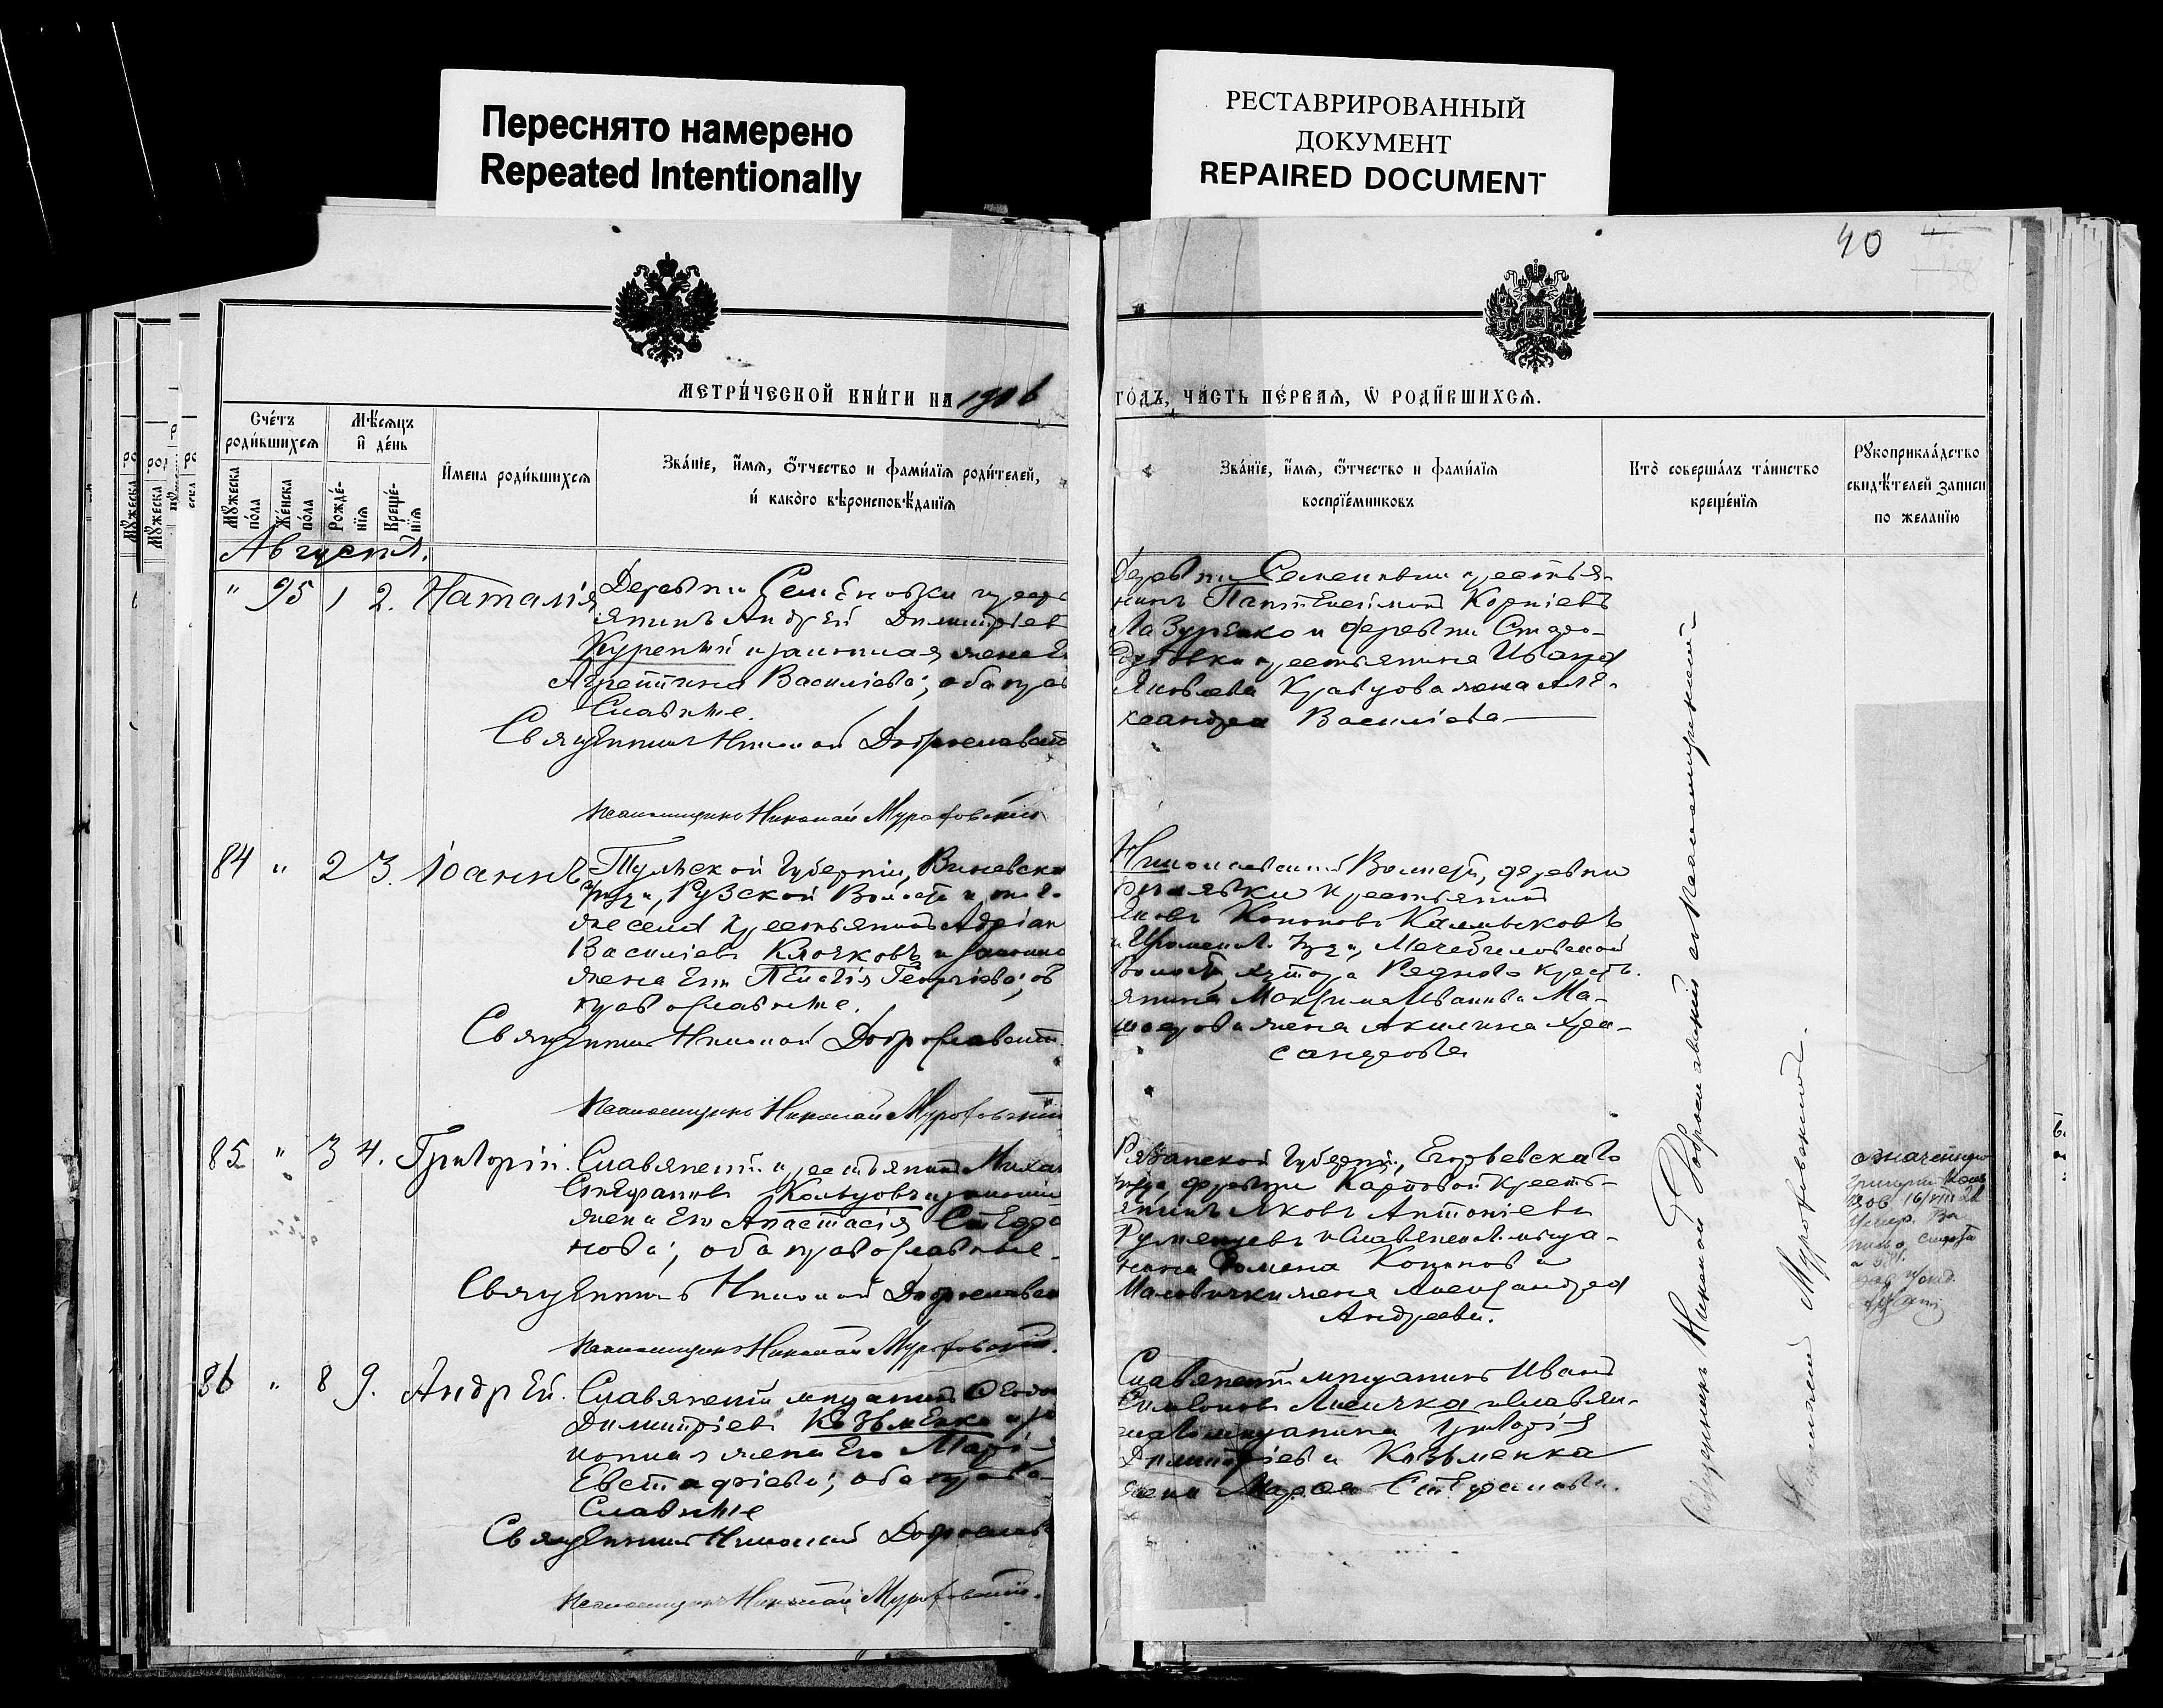 Переснято намерено
Repeated Intentionally
РЕСТАВРИРОВАННЫЙ
ДОКУМЕНТ
REPAIRED DOCUMENT
40
МЕТРИ́ЧЕСКОЙ КНИ́ГИ НА 1906
ГО́ДЪ, ЧА́СТЬ ПЕ́РВАЯ, Ѡ РОДИ́ВШИХСЯ.
Сче́тъ роди́вшихся
Мѣ́сяцъ и҆ де́нь
Мꙋ́жеска по́ла
Же́нска по́ла
Рожде́нїя
Креще́нїя
И҆мена роди́вшихся
Зва́нїе, и҆́мя, ѻ҆́тчество и фами́лїя роди́телей,
и҆ како́го вѣроисповѣ́данїя
Зва́нїе, и҆́мя, ѻ҆́тчество и фами́лїя
воспрїе́мниковъ
Кто̀ соверша́лъ та́инство
креще́нїя
Рꙋкоприкла́дство
свидѣ́телей записи
по жела́нїю
Августъ.
" 95 1 2. Наталія
Деревни Семёновки крест
янинъ Андрей Димитріев
Куренной и законная жена Е
Агриппина Василіева; оба пра
славные.
Священникъ Николай Доброславскій
Псаломщикъ Николай Мурафовскій
деревни Семеновки крестья-
нинъ Пантелеймонъ Корніевъ
Лазуренко и деревни Старо-
дубовки крестьянина Ивана
Яковлева Кравцова жена Але-
ксандра Василіева
84 " 2 3. Іоаннъ
Тульской Губерніи, Веневска
Василіевъ Клочковъ и законна
жена его Пелагія Георгіева; об
православные.
Священникъ Николай Доброславскій
Псаломщикъ Николай Мурафовскій
Николаевской Волости, деревни
крестьянинъ
Яковъ Кононовъ Калмыковъ
янина Максима Иванова Ма-
жена Акилина Алек-
сандрова
85 " 3 4. Григорій.
Славянскій крестьянинъ Миха
Стефановъ Кольцовъ и законная
жена его Анастасія Стефа
нова; оба православные.
Священникъ Николай Доброславск
Псаломщикъ Николай Мурафовскій.
Рязанской Губерніи, Егорьевскаго
уѣзда, деревни Карповой Кресть-
янинъ Яковъ Антоніевъ
Румянцевъ и Славянскаго мѣща-
нина Фомена Кононова
жена Александра
Андреева.
86 " 8 9. Андрей.
Славянскій мѣщанинъ Ѳеодо
Димитріевъ Козьменко и за
конная жена его Марія
Евстафіева; оба право
славные
Священникъ Николай Доброслав
Псаломщикъ Николай Мурафовскій.
Славянскій мѣщанинъ Иванъ
Симеоновъ Лисичка и славян-
скаго мѣщанина Григорія
Димитріева Козьменка
жена Марѳа Стефанова.
Священникъ Николай Доброславскій съ Псаломщикомъ
Николаемъ Мурафовскимъ.